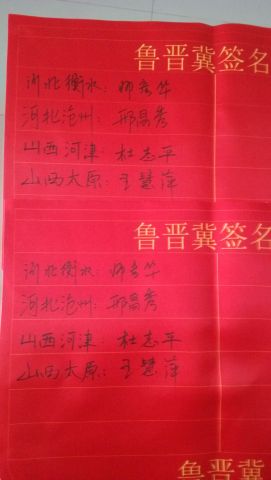 鲁晋冀签名
河北衡水：师秀华
河北沧州：邢昌秀
山西河津：杜志平
山西太原：王慧萍
鲁晋冀签名
河北衡水：师秀华
河北沧州：邢昌秀
山西河津：杜志平
山西太原：王慧萍
鲁晋冀